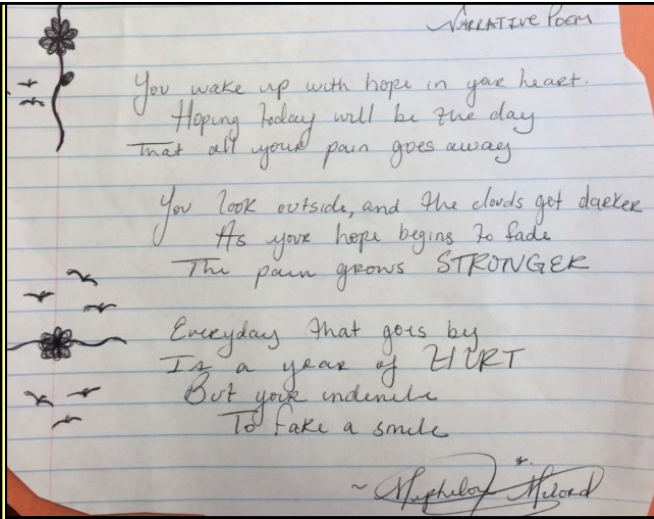 NARRATIVE POEM
You wake up with hope in your heart.
Hoping today will be the day
That all your pain goes away
You look outside, and the clouds get darker
As your hope begins to fade
The pain grows STRONGER
Everyday that goes by
Is a year of HURT
But your
To fake a smile
~